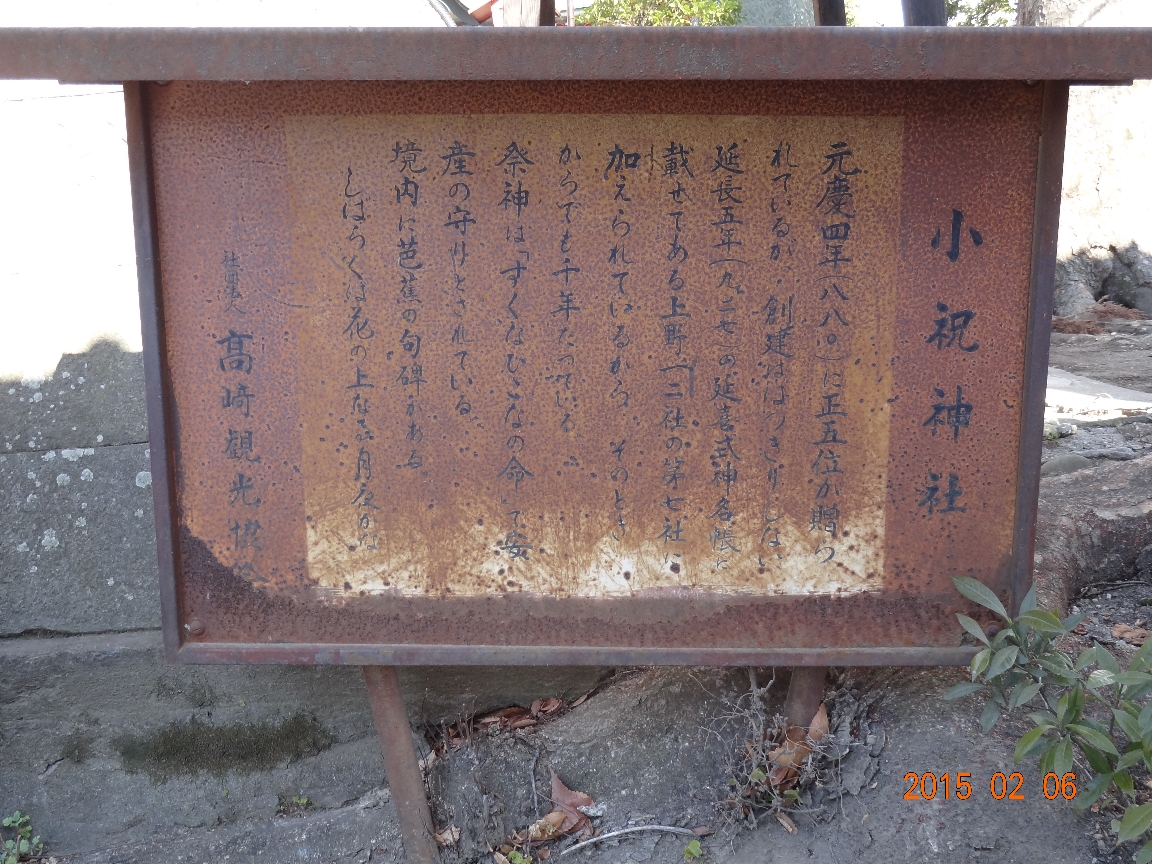 小祝神社
元慶四年(八八〇)に正五位が贈ら
れているが、創建ははっきりしない
延長五年(九二七)の延喜式神名帳に
載せてある上野十二社の第七社に
加えられているから そのとき
からでも千年たっている
祭神は「すくなひこなの命」で安
産の守りとされている。
境内に芭蕉の句碑がある。
しばらくは花の上なる月夜かな
社団法人 高崎観光協会
2015 02 06